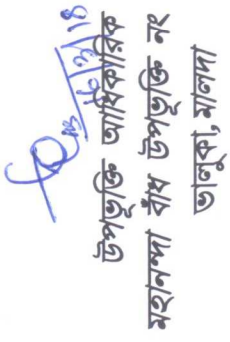 উপভুক্তি আধিকারিক
মহানন্দা বাঁধ উপভুক্তি নং
ভালুকা, মালদা